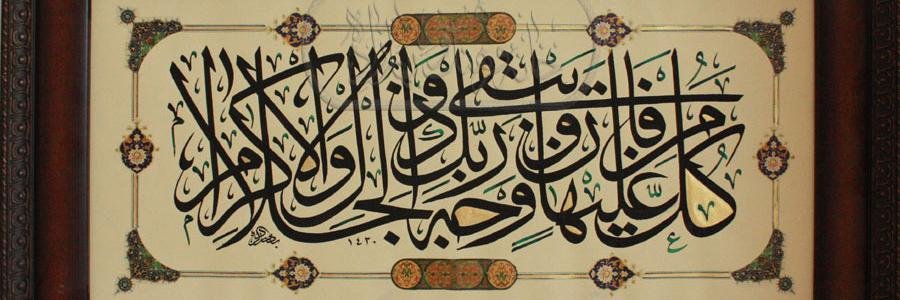 كل من عليها فان ويبقى وجه ربك ذو الجلال والاكرام
١٤٣٠